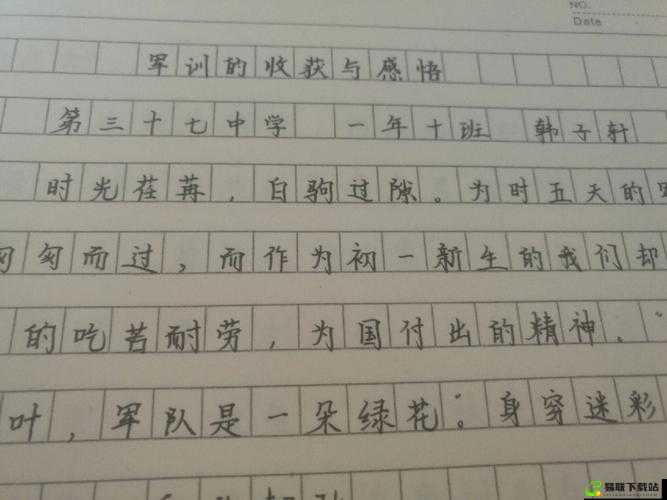 NO.
Date
军训的收获与感悟
第三十七中学 一年十班 韩子轩
时光荏苒，白驹过隙。为时五天的军
匆匆而过，而作为初一新生的我们却
的吃苦耐劳，为国付出的精神。“
叶，军队是一朵绿花。”身穿迷彩
易联下载站